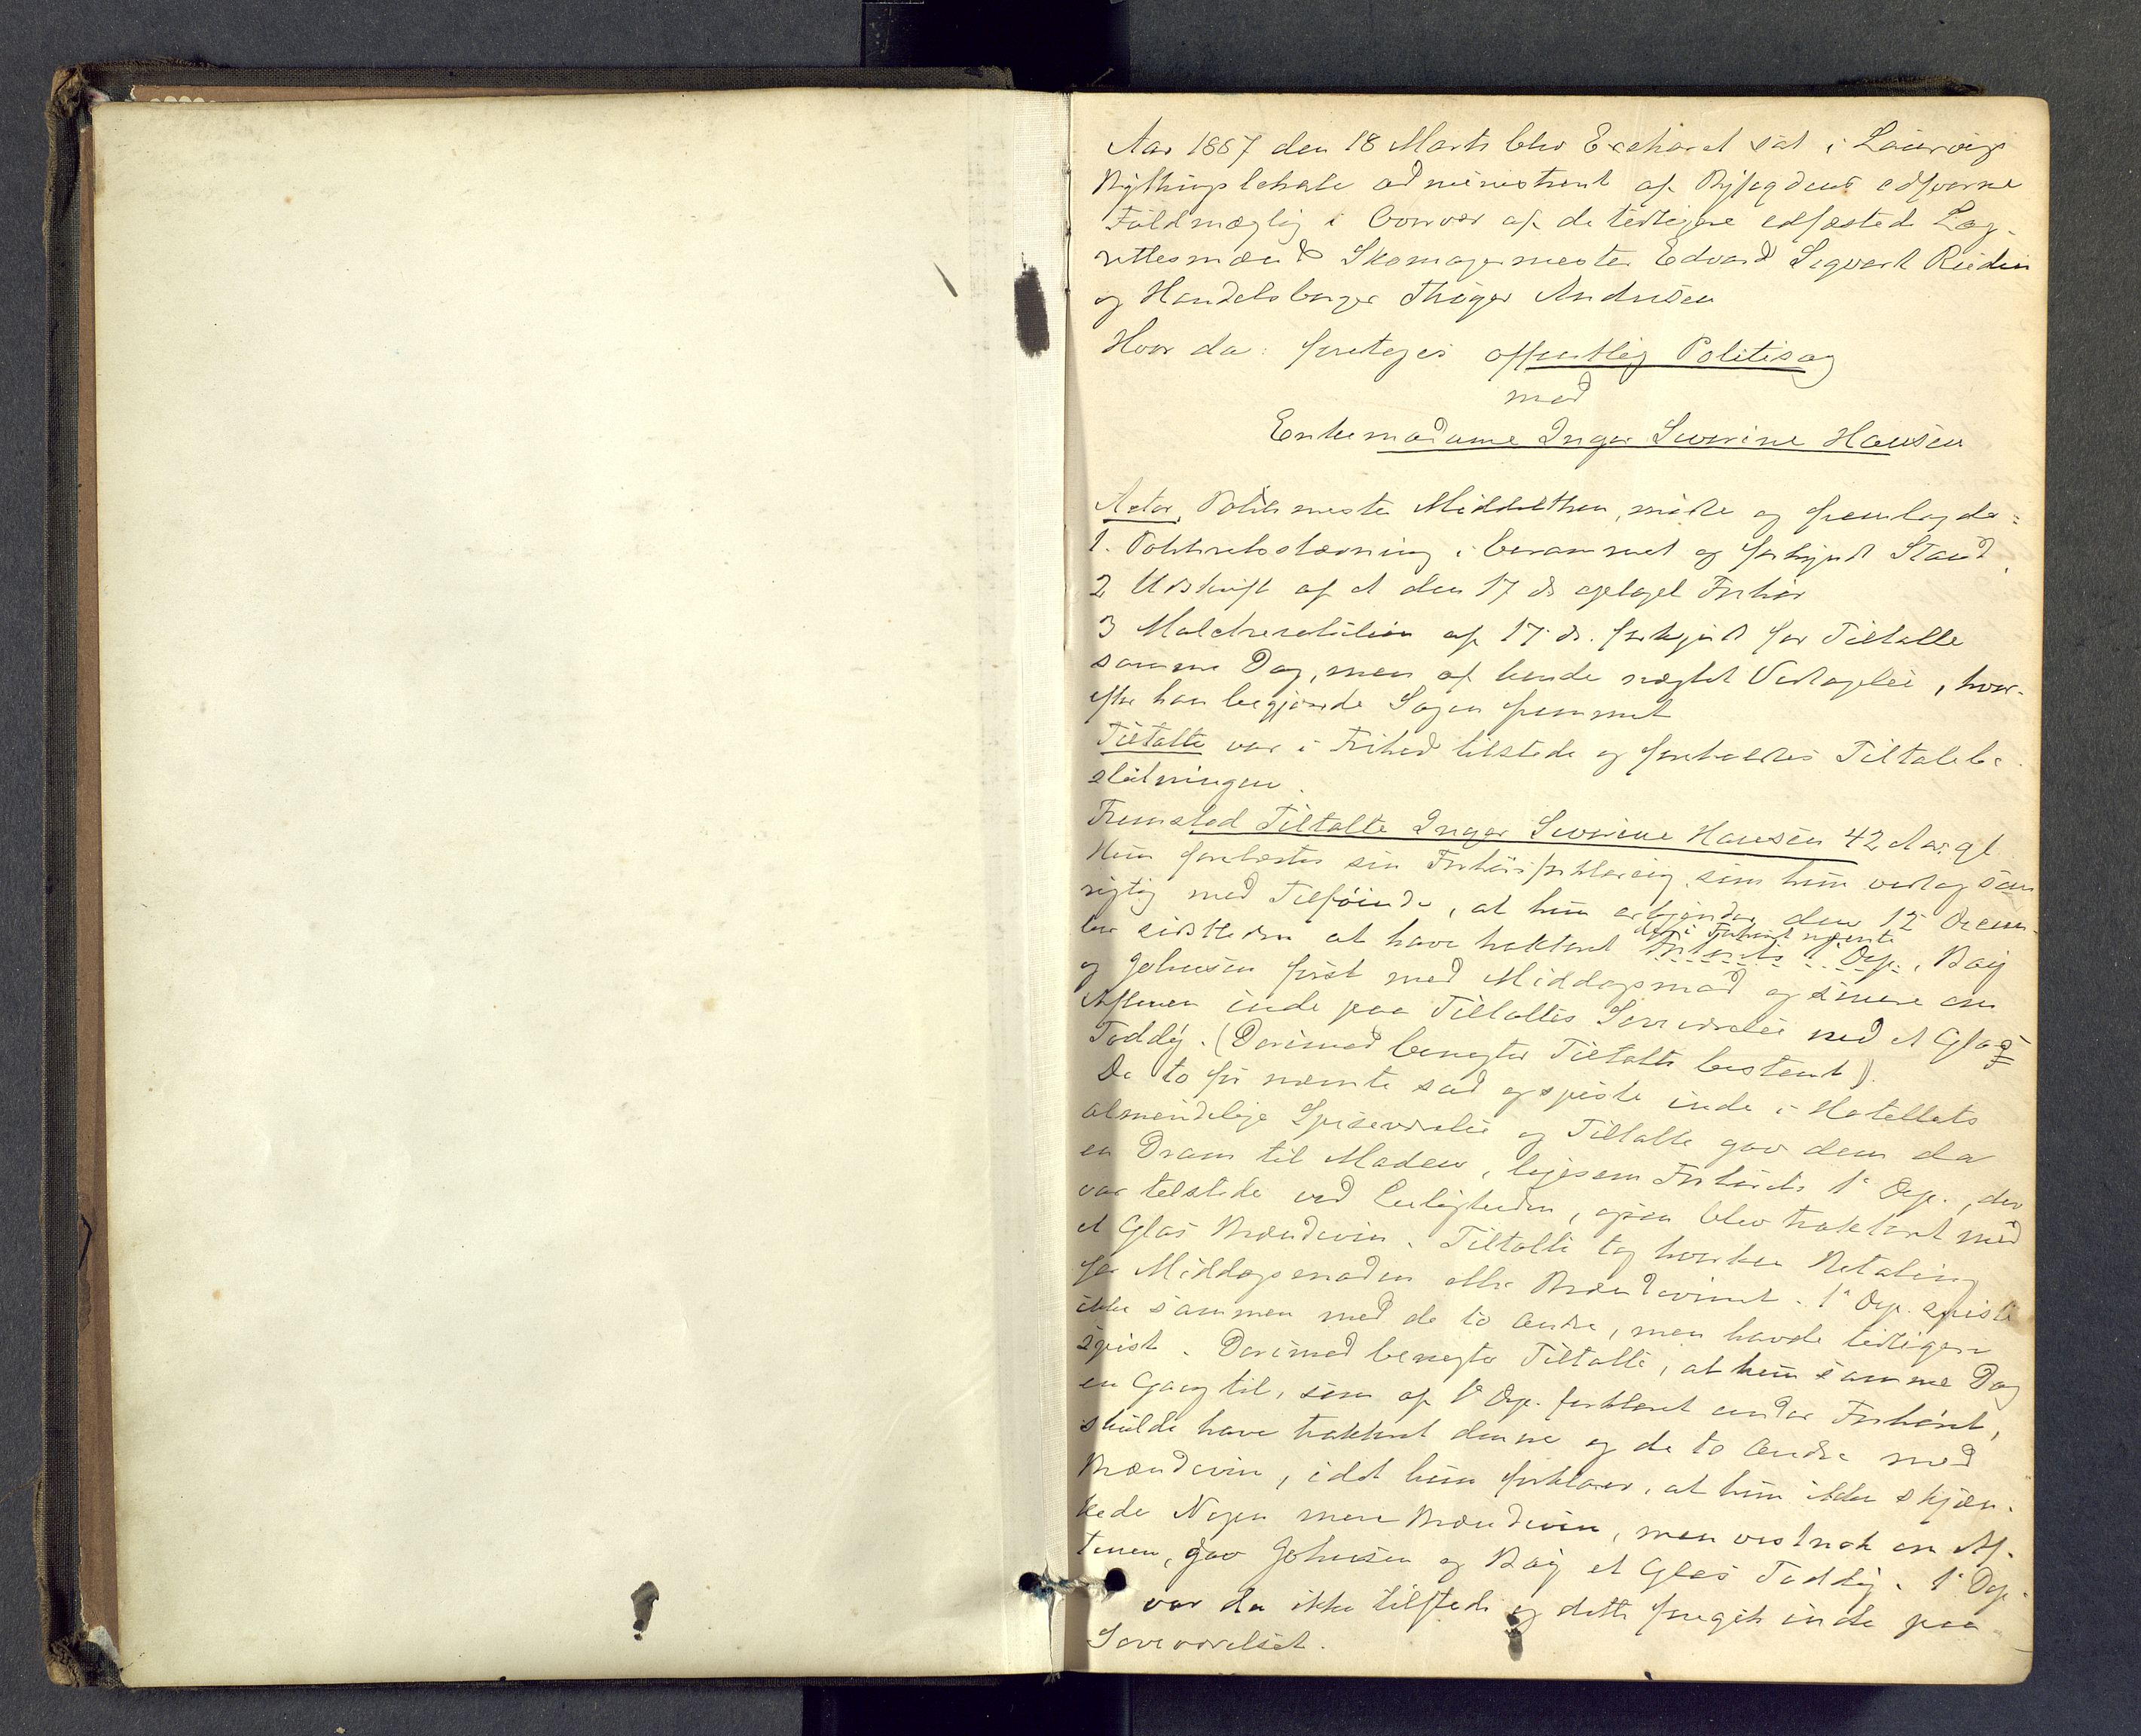 Aar 1887 den 18 Marts blev Extraret sat i Laurvigs
Bythingslokale administreret af Byfogdens edsvorne
Fuldmægtig i Overvær af de tidligere edfæstede Lag-
rettesmænd Skomagermester Edvard Sigvart
og Handelsborger Thøger Andresen
Hvor da: foretoges offentlig Politisag
mod
Enkemadame Inger Severine Hansen
Actor, Politimester Middelthon, mødte og fremlagde:
1. Politiretsstævning i berammet og forkyndt Stand.
2 Udskrift af et den 17 ds optaget Forhør
3 Mulctresolution af 17 ds. forkyndt for Tiltalte
samme Dag, men af hende nægtet Vedtagelse, hvor-
efter han begjærede Sagen fremmet
Tiltalte var i Frihed tilstede og foreholdtes Tiltalebe-
slutningen.
Fremstod Tiltalte Inger Severine Hansen 42 Aar gl
Hun forelæstes sin Forhørsforklaring, som hun vedtog som
rigtig med Tilføiende, at hun erkjender den 12 Decem-
ber sidstleden at have traktert de i Forhøret nævnte Forhørets 1ste Dep., Bøig
og Johnsen først med Middagsmad og senere om
Aftenen inde paa Tiltaltes Soveværelse med et Glas
Toddy. (Derimod benegter Tiltalte bestemt).
De to før nævnte sad og spiste inde i Hotellets
almindelige Spiseværelse og Tiltalte gav dem da
en Dram til Maden, ligesom Forhørets 1e Dep., der
var tilstede ved Leiligheden, ogsaa blev traktert med
et Glas Brændevin. Tiltalte tog hverken Betaling
for Middagsmaden eller Brændevinet. 1e Dep. spiste
ikke sammen med de to Andre, men havde tidligere
spist. Derimod benegter Tiltalte, at hun samme Dag
en Gang til, som af 1e Dep. forklaret under Forhøret,
skulde have traktert denne og de to Andre med
Brændevin, idet hun forklarer, at hun ikke skjæn-
kede Nogen mere Brændevin, men vistnok om Af-
tenen, gav Johnsen og Bøig et Glas Toddy. 1e Dep.
var da ikke tilstede og dette foregik inde paa
Soveværelset.